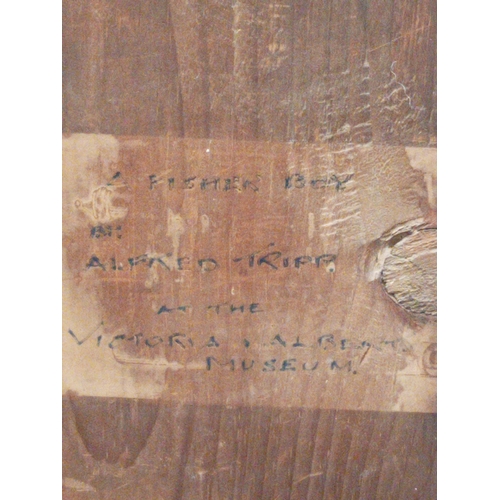 A FISHER BOY
BY
ALFRED TRIPP
AT THE
VICTORIA & ALBERT
MUSEUM.